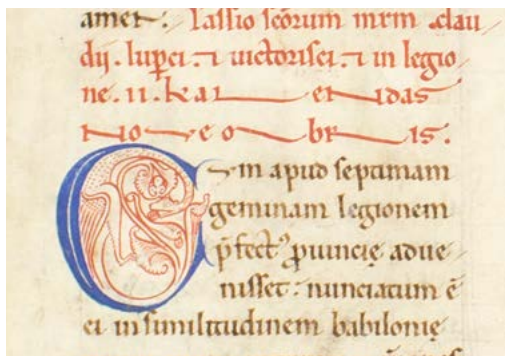 amet. Passio scōrum mrm .clau
dij. luꝑci. ⁊ uictorici. ⁊ in legio
ne. ii. kal et idas
br is.
C apud septimam
geminam legionem
p̄fectꝰ ꝓuincię adue
nisset: nunciatum ē
ei in similitudinem babilonię